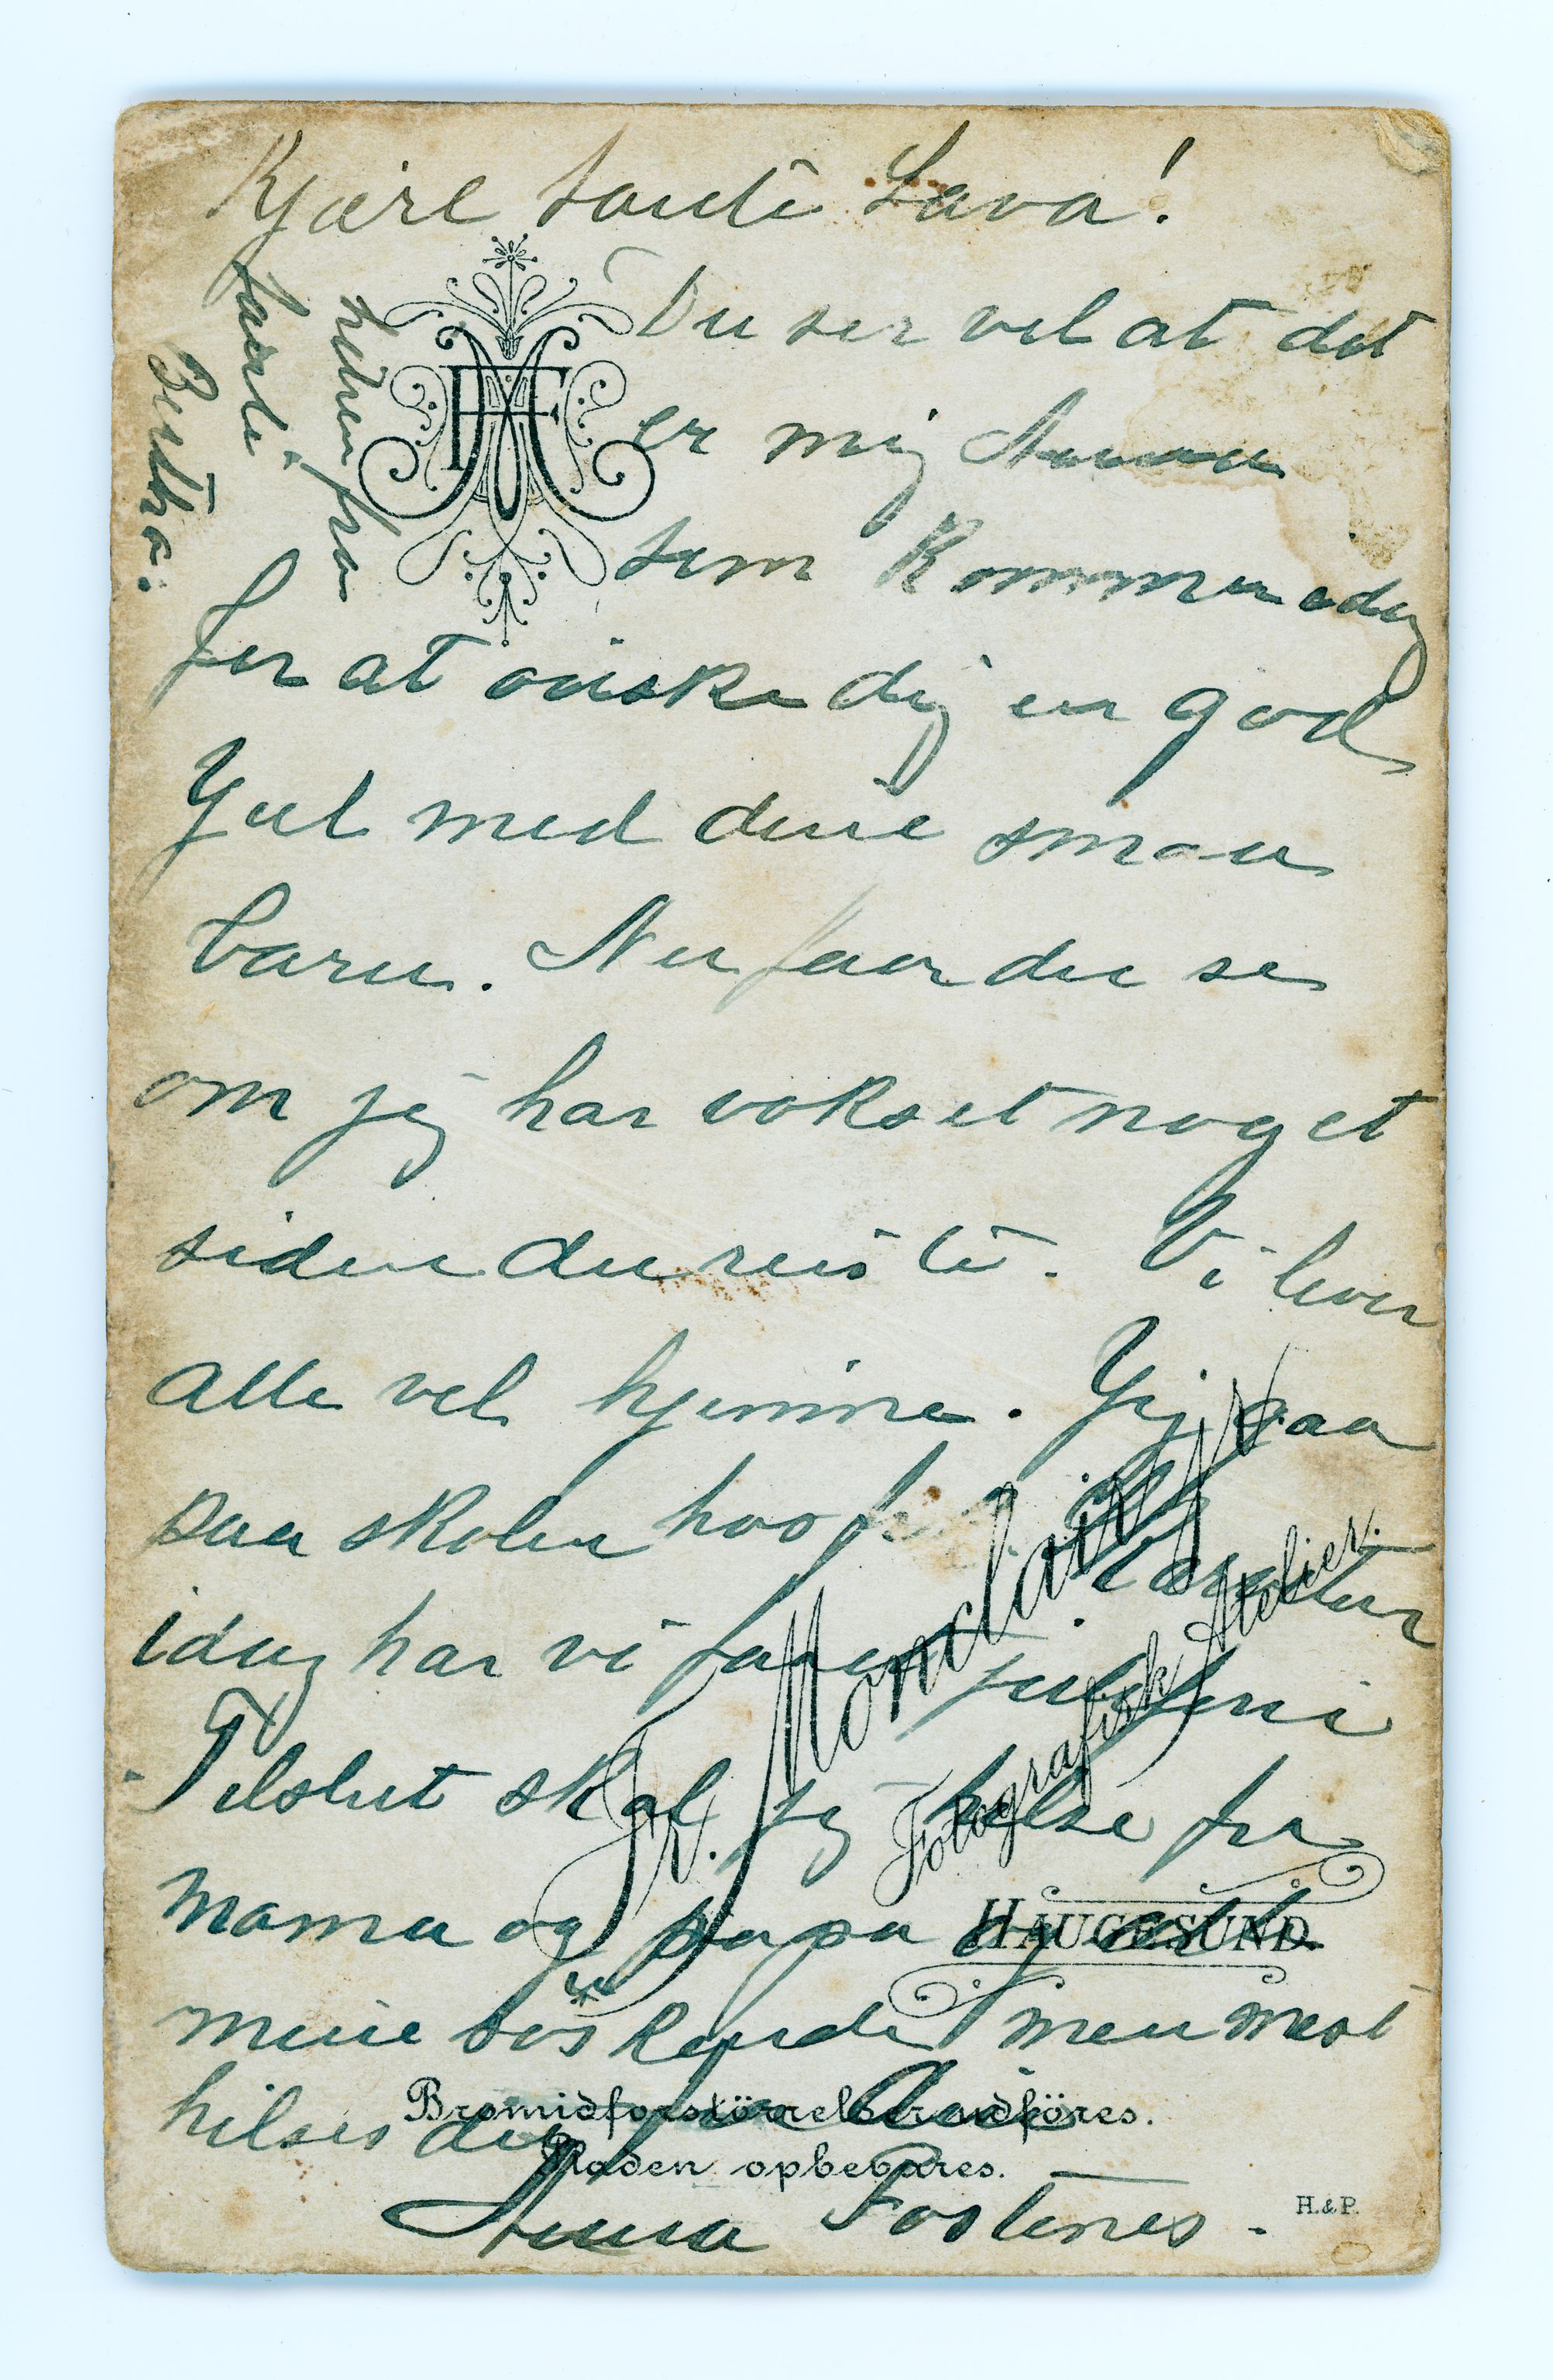 Kjære tante Lava!
Du ser vel at det
er mig Anna
som Kommer
for at önske dig en god
Yul med dine smaa
barn. Nu faar du se
om jeg har vokset noget
siden du reiste. Vi lever
alle vel hjemme. Yeg gaar
paa skolen hos
idag har vi faaet juleferie
Tilslut skal jeg hilse fra
mama og papa og alle
mine söskende men mest
hilses du fra
Anna Fostenes.
hilsen fra
tante
Bertha.
Fr. Monclair
Fotografisk Atelier.
HAUGESUND.
Bromidforstörrelser udföres.
Pladen opbevares.
H. & P.